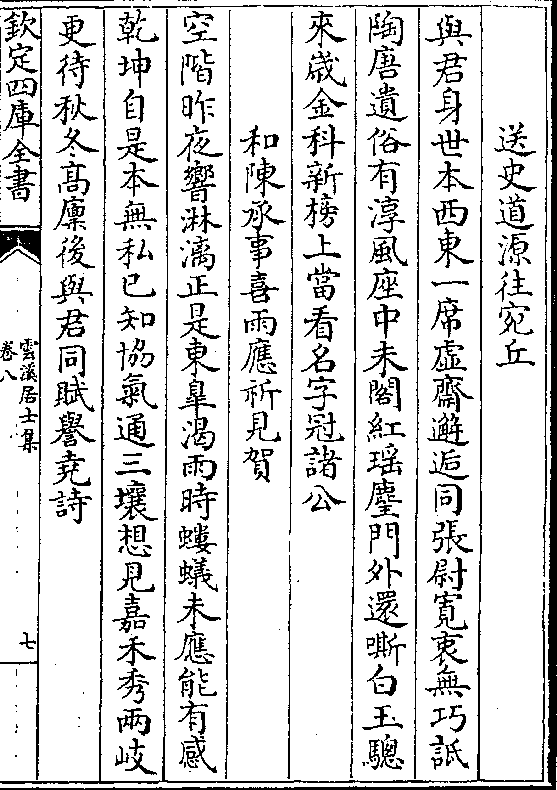 送史道源往宛丘
與君身世本西東一席虚齋邂逅同張尉寛衷無巧詆
陶唐遺俗有淳風座中未閣紅瑶麈門外還嘶白玉驄
來歲金科新榜上當看名字冠諸公
和陳承事喜雨應祈見賀
空階昨夜響淋漓正是東臯渇雨時螻蟻未應能有感
乾坤自是本無私已知協氣通三壤想見嘉禾秀兩岐
更待秋冬髙廩後與君同賦譽堯詩
欽定四庫全書
雲溪居士集
卷八
七